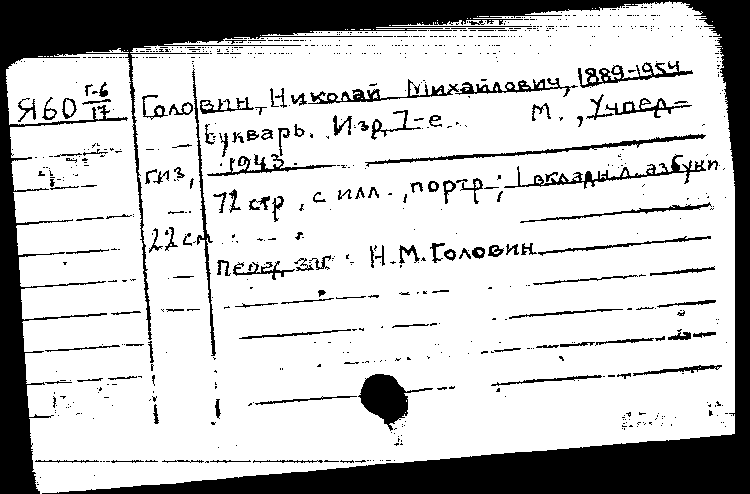 Я60 Г-6/17
Головин, Николай Михайлович, 1889-1954
Букварь. Изд 7-е. М., Учпед=
гиз, 1943.
72 стр, с илл., портр; 1 вкладн. л. азбуки
22 см.
Перед заг: Н.М. Головин